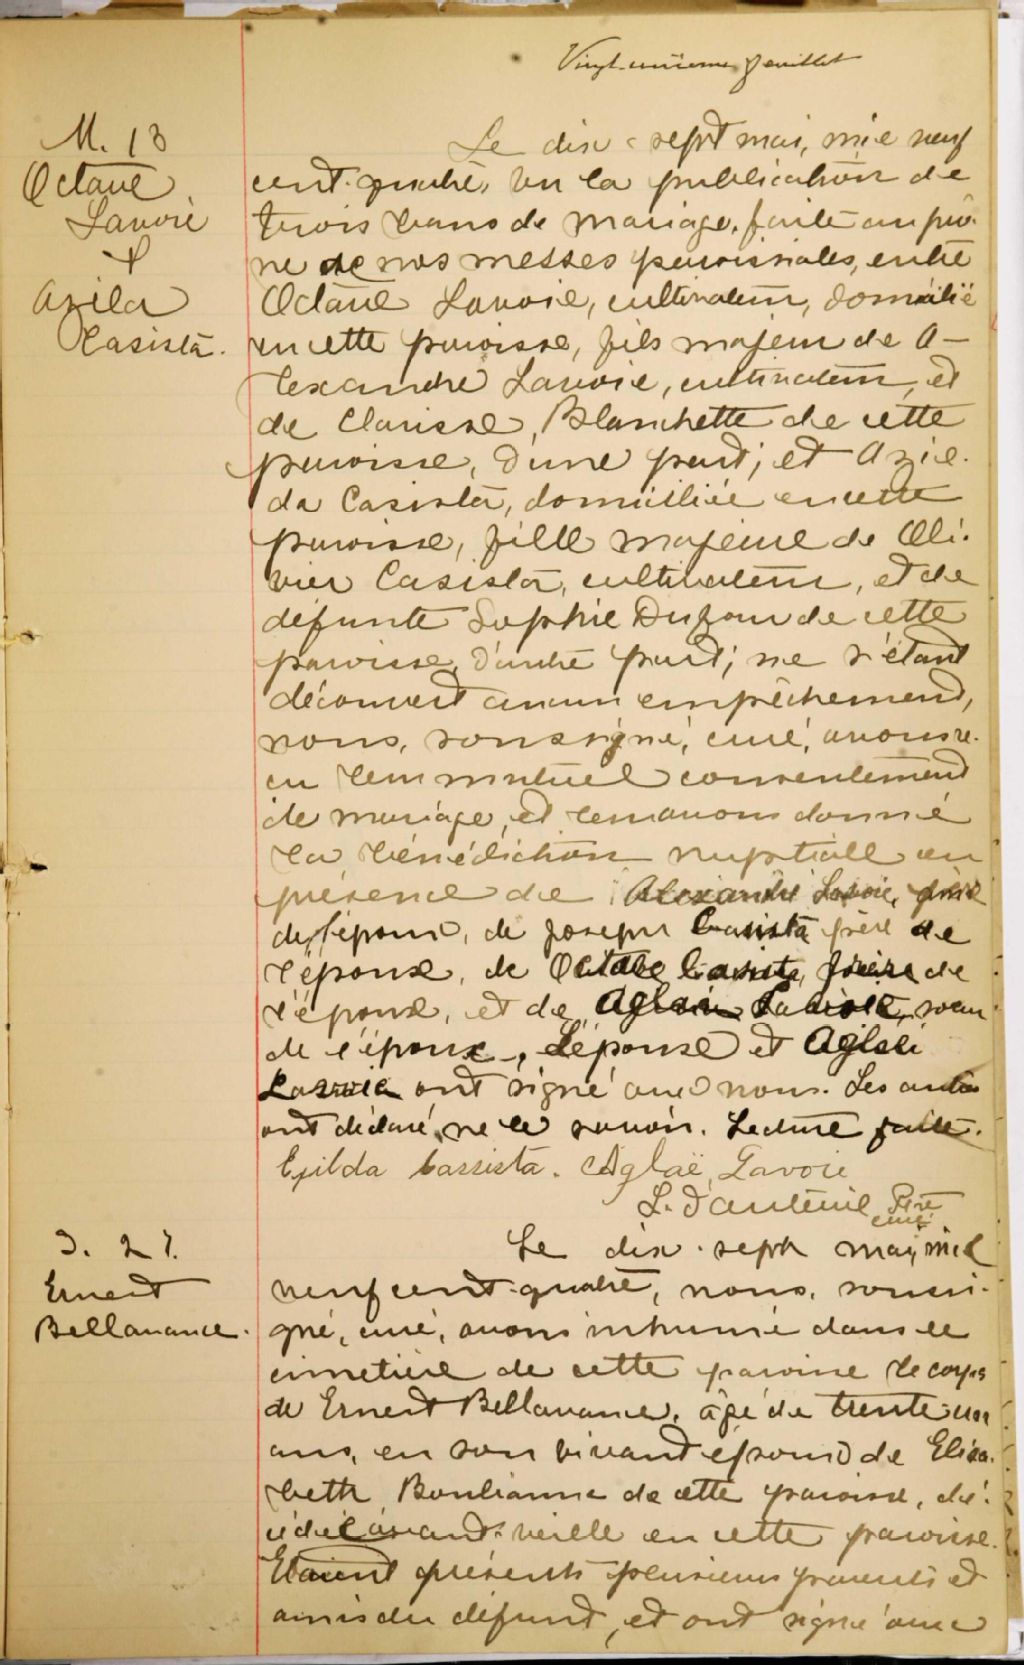 Vingt-unième feuillet
M. 13
Octave
Lavoie
&
Azilda
Casista.
Le dix-sept mai, mil neuf
cent-quatre, vu la publication de
trois bans de mariage, faite au prô-
ne de nos messes paroissiales, entre
Octave Lavoie, cultivateur, domicilié
en cette paroisse, fils majeur de A-
lexandre Lavoie, cultivateur, et
de Clarisse Blanchette de cette
paroisse, d'une part; et Azil-
da Casista, domiciliée en cette
paroisse, fille majeure de Oli-
vier Casista, cultivateur, et de
défunte Sophie Dufour de cette
paroisse, d'autre part; ne s'étant
découvert aucun empêchement,
nous, soussigné, curé, avons re-
çu leur mutuel consentement
de mariage, et leur avons donné
la bénédiction nuptiale en
présence de Alexandre Lavoie, père
de l'époux, de Joseph Casista frère de
l'épouse, de Octave Casista, frère de
l'épouse, et de Aglaé Lavoie, soeur
de l'époux, L'épouse et Aglaé
Lavoie ont signé avec nous. Les autres
ont déclaré ne le savoir. Lecture faite.
Exilda Cassista. Aglaë Lavoie
L. D'auteuil Ptre
curé
S. 27.
Ernest
Bellavance.
Le dix-sept mai, mil
neuf cent-quatre, nous, soussi-
gné, curé, avons inhumé dans le
cimetière de cette paroisse le corps
de Ernest Bellavance, âgé de trente-un
ans, en son vivant époux de Eliza-
beth Boulianne de cette paroisse, dé-
cédé l'avant-veille en cette paroisse.
Etaient présents plusieurs parents et
amis du défunt, et ont signé avec